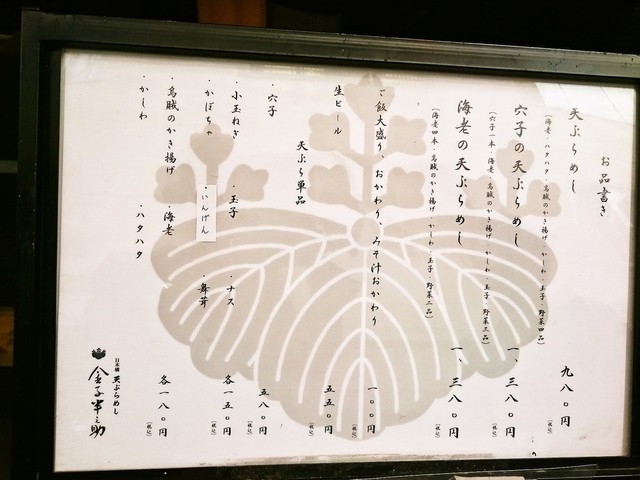 お品書き
天ぷらめし 九八〇円
(海老・ハタハタ・烏賊のかき揚げ・かしわ・玉子・野菜四品) (税込)
穴子の天ぷらめし 一、三八〇円
(穴子一本・海老・烏賊のかき揚げ・かしわ・玉子・野菜三品) (税込)
海老の天ぷらめし 一、三八〇円
(海老四本・烏賊のかき揚げ・かしわ・玉子・野菜二品) (税込)
ご飯大盛り、おかわり、みそ汁おかわり 一〇〇円
(税込)
生ビール 五五〇円
(税込)
天ぷら単品
・穴子 五八〇円
(税込)
・小玉ねぎ ・玉子 ・ナス 各一五〇円
・かぼちゃ ・いんげん ・舞茸 (税込)
・烏賊のかき揚げ ・海老 各一八〇円
・かしわ ・ハタハタ (税込)
日本橋 天ぷらめし
金子半之助